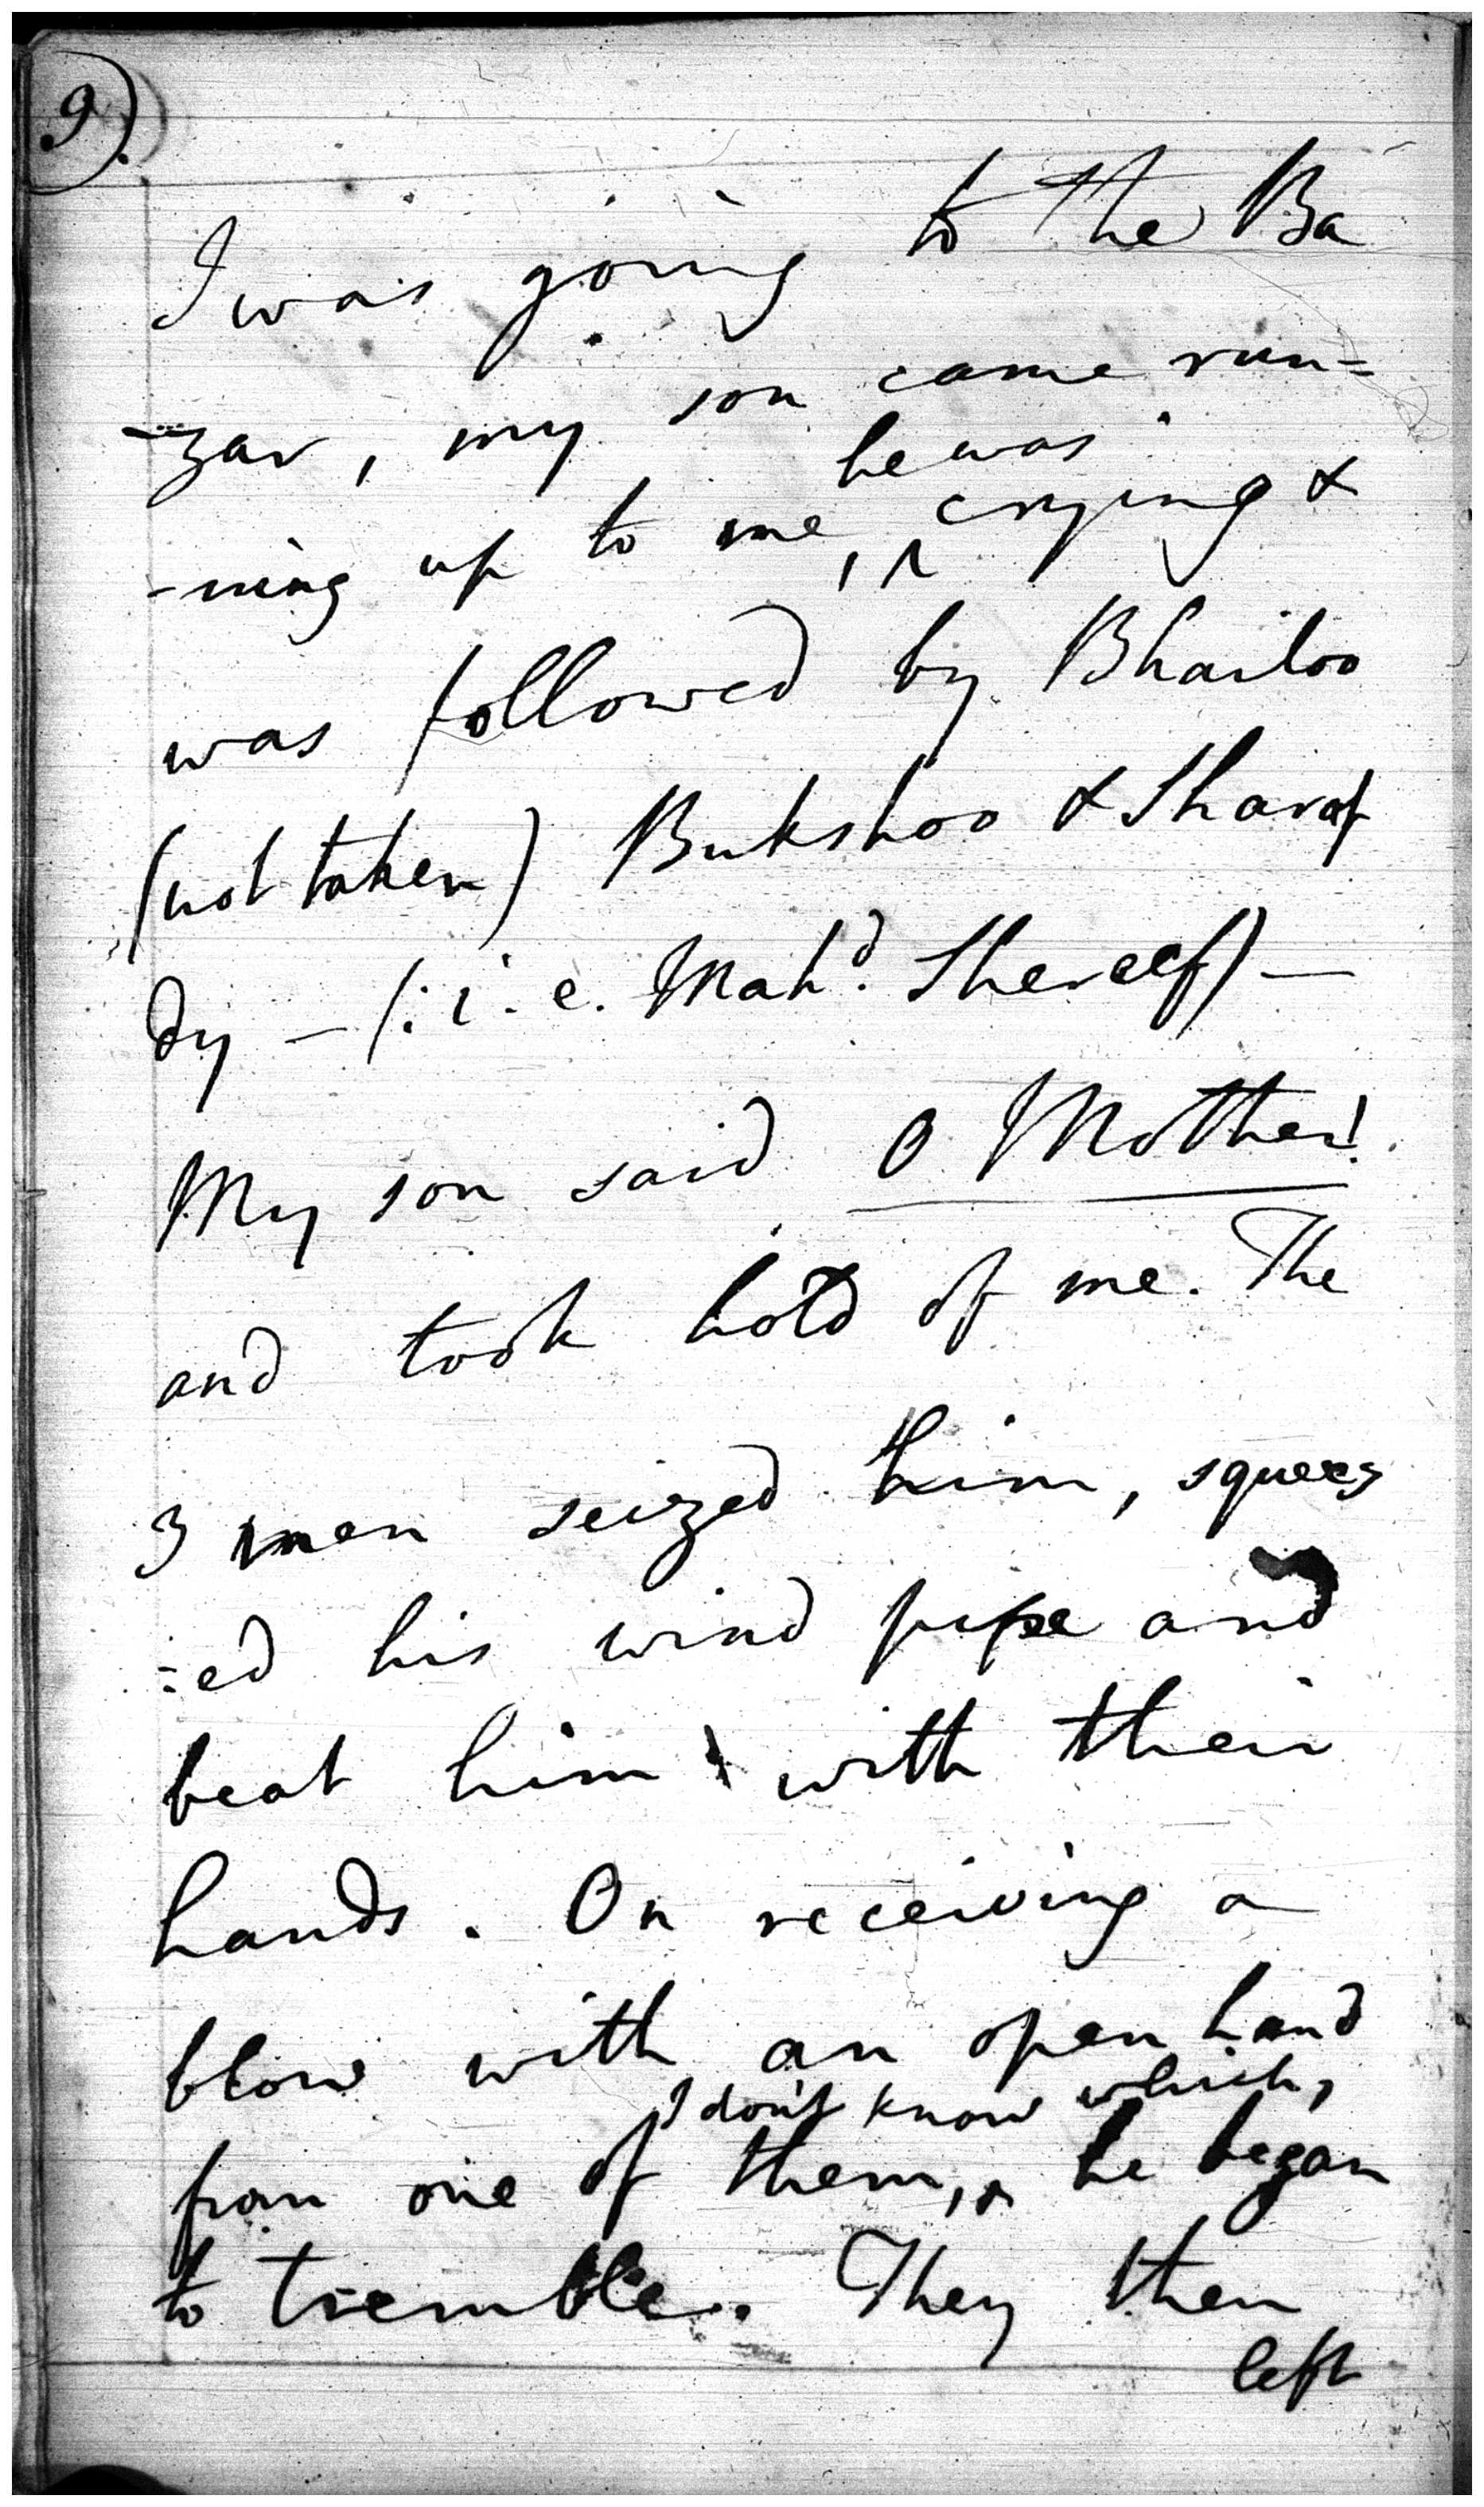 9).
I was going to the Ba
-zar, my son came run=
he was
-ning up to me, ^ crying &
was followed by Bhailoo
(not taken) Bukshoo & Sharaf
dy — (: i. e. Mahd. Shereef) —
My son said O Mother!
and took hold of me. The
3 men seized him, squeez
=ed his wind pipe and
beat him with their
hands. On receiving a
blow with an open hand
I don't know which,
from one of them, ^ he began
to tremble. They then
left